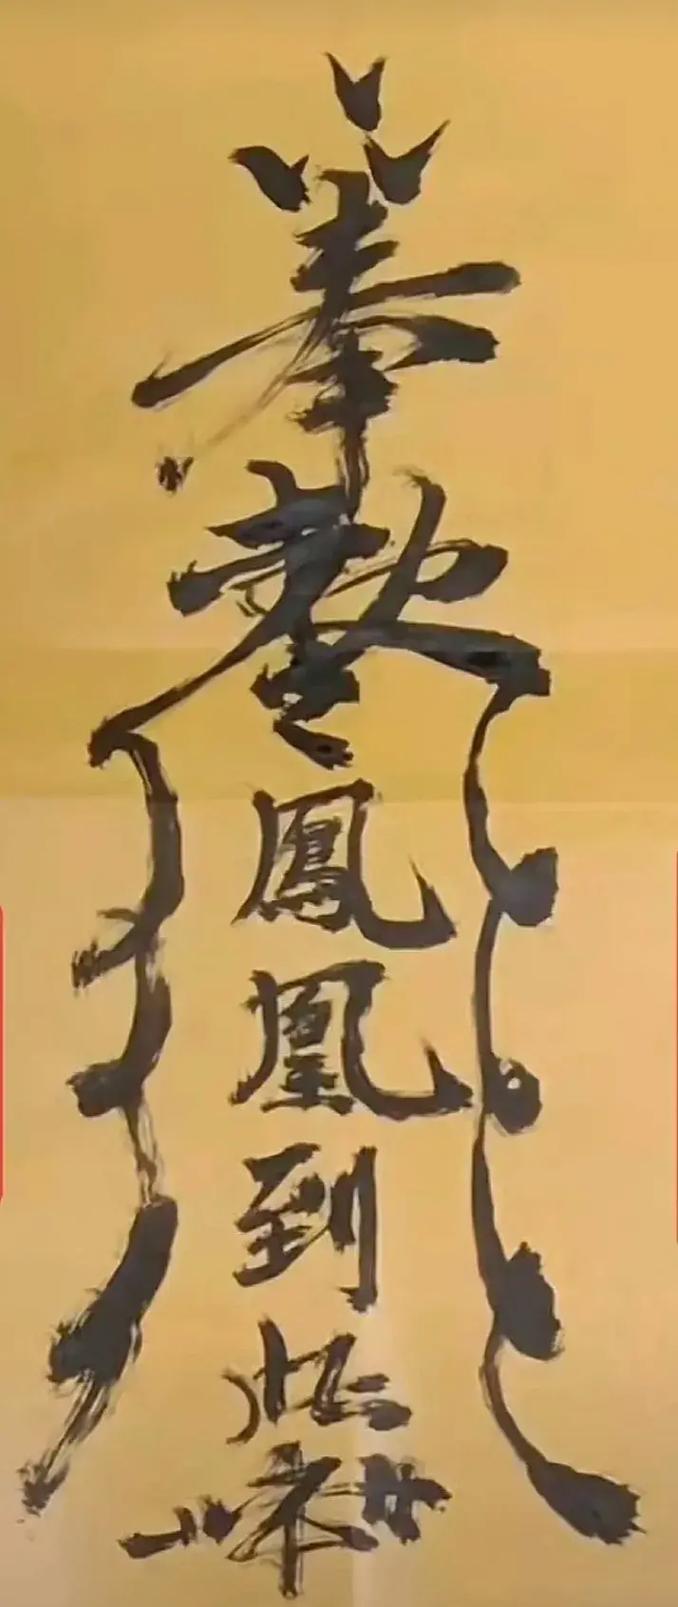 奉
敕
令
鳳
凰
到
此